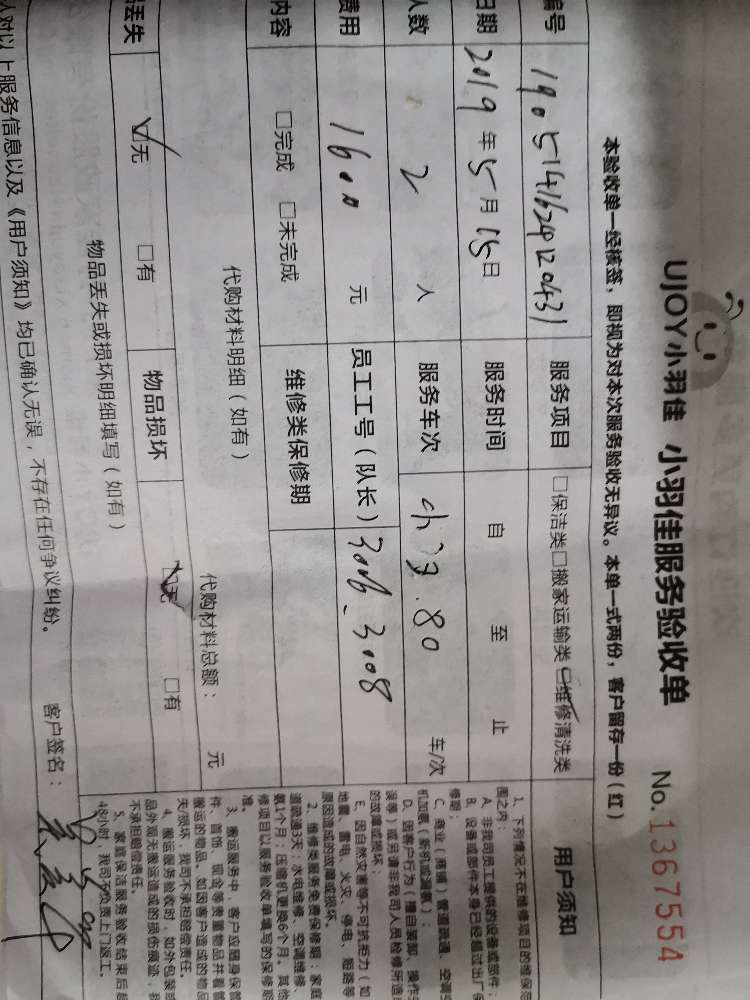 UJOY小羽佳 小羽佳服务验收单 No.1367554
本验收单一经核签，即视为对本次服务验收无异议。本单一式两份，客户留存一份（红）
编号 1905141629120431 服务项目 □保洁类□搬家运输类☑维修清洗类
日期 2019年5月15日 服务时间 自 至 止
人数 2 人 服务车次 车/次
费用 1600 元 员工工号（队长） 3006_3008
内容 □完成 □未完成 维修类保修期
代购材料明细（如有） 代购材料总额： 元
丢失 ☑无 □有 物品损坏 ☑无 □有
物品丢失或损坏明细填写（如有）
对以上服务信息以及《用户须知》均已确认无误，不存在任何争议纠纷。
客户签名：
用户须知
1、下列情况不在维修项目的维保范
围之内：
A、非我司员工提供的设备或部件；
B、设备或部件本身已经超过出厂保
修期；
C、商业（商铺）管道疏通、空调
机加氨（新机或漏氨）；
D、因客户行为（擅自装卸、操作
误等）或另请非我司人员检修所造
的故障或损坏；
E、因自然灾害等不可抗拒力（如
地震、雷电、火灾、停电、短路等
原因造成的故障或损坏。
2、维修类服务免费保修期：家庭
道疏通3天；水电维修、空调维修、
氨1个月；压缩机更换6个月。其他
修项目以服务验收单填写的保修期
准。
3、搬运服务中，客户应随身保管
件、首饰、现金等贵重物品并看管
搬运的物品。如因客户造成的物品
失/损坏，我司不承担赔偿责任。
4、搬运服务验收时，如外包装或
品外观无搬运造成的损伤痕迹，我
不承担赔偿责任。
5、家庭保洁服务验收结束后超
48小时，我司不负责上门返工。